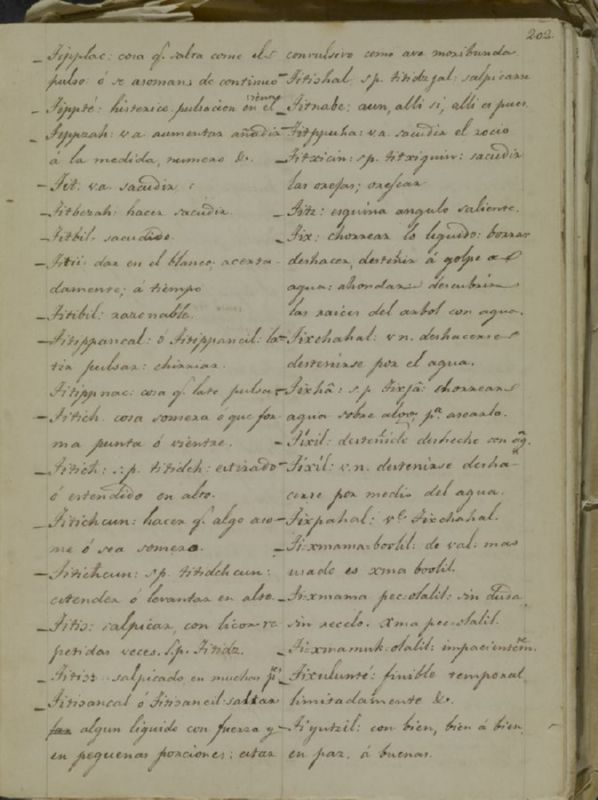 202
Tipplac: cosa q.e salta como el
pulso ó se asoman: de continuo
Tippté: histerico pulsacion en el vientre
Tippzah: va. aumentar añadir
á la medida, numero &.
Tit: va. sacudir:
Titbezah: hacer sacudir.
Titbil: sacudido.
Titií: dar en el blanco, acerta-
damente; á tiempo
Titibil: razonable.
Titippancal: ó Titippancil: la-
tir pulsar: chirriar.
Titippnac: cosa q.e late pulsa
Titich cosa somera ó que for
ma punta ó vientre.
Titich: s.p. titidch: estirado
ó estendido en alto.
Titichcun: hacer q.e algo aso-
me ó sea somero.
Titichcun: s.p. titidchcun:
estender ó levantar en alto.
Titis: salpicar, con licor re
petidas veces. S.p. Titidz.
Titisz salpicado en muchas p.tes
Titisancal ó Titsancil saltar
algun liquido con fuerza y
en pequeñas porciones: estar
convulsivo como ave moribunda
Titishal s.p. titidzjal: salpicarse
Titnabe: aun, alli si, alli es pues.
Titppuha: va. sacudir el rocio
Titxicin: s.p. titxiquin: sacudir
las orejas; orejear
Titz: esquina angulo saliente.
Tix: chorrear lo liquido: borrar
deshacer, desteñir á golpe de
agua: ahondar descubrir
las raices del arbol con agua.
Tixchahal: v.n. deshacerse
desteñirse por el agua.
Tixhâ: s.p. tixjâ: chorrear
agua sobre algo p.a asearlo.
Tíxil: desteñido deshecho con ag.a
Tíxíl: v.n. desteñirse desha-
cerse por medio del agua.
Tixpahal: v.e Tixchahal.
Tixmama-boolil: de val: mas
usado es xma boolil.
Tixmama pec-olalil: sin duda,
sin recelo. xma pec-olalil.
Tixmamuk-olalil: impacientem.te
Tixulunté: finible temporal
limitadamente &.
Tiyutzil: con bien, bien á bien,
en paz. á buenas.